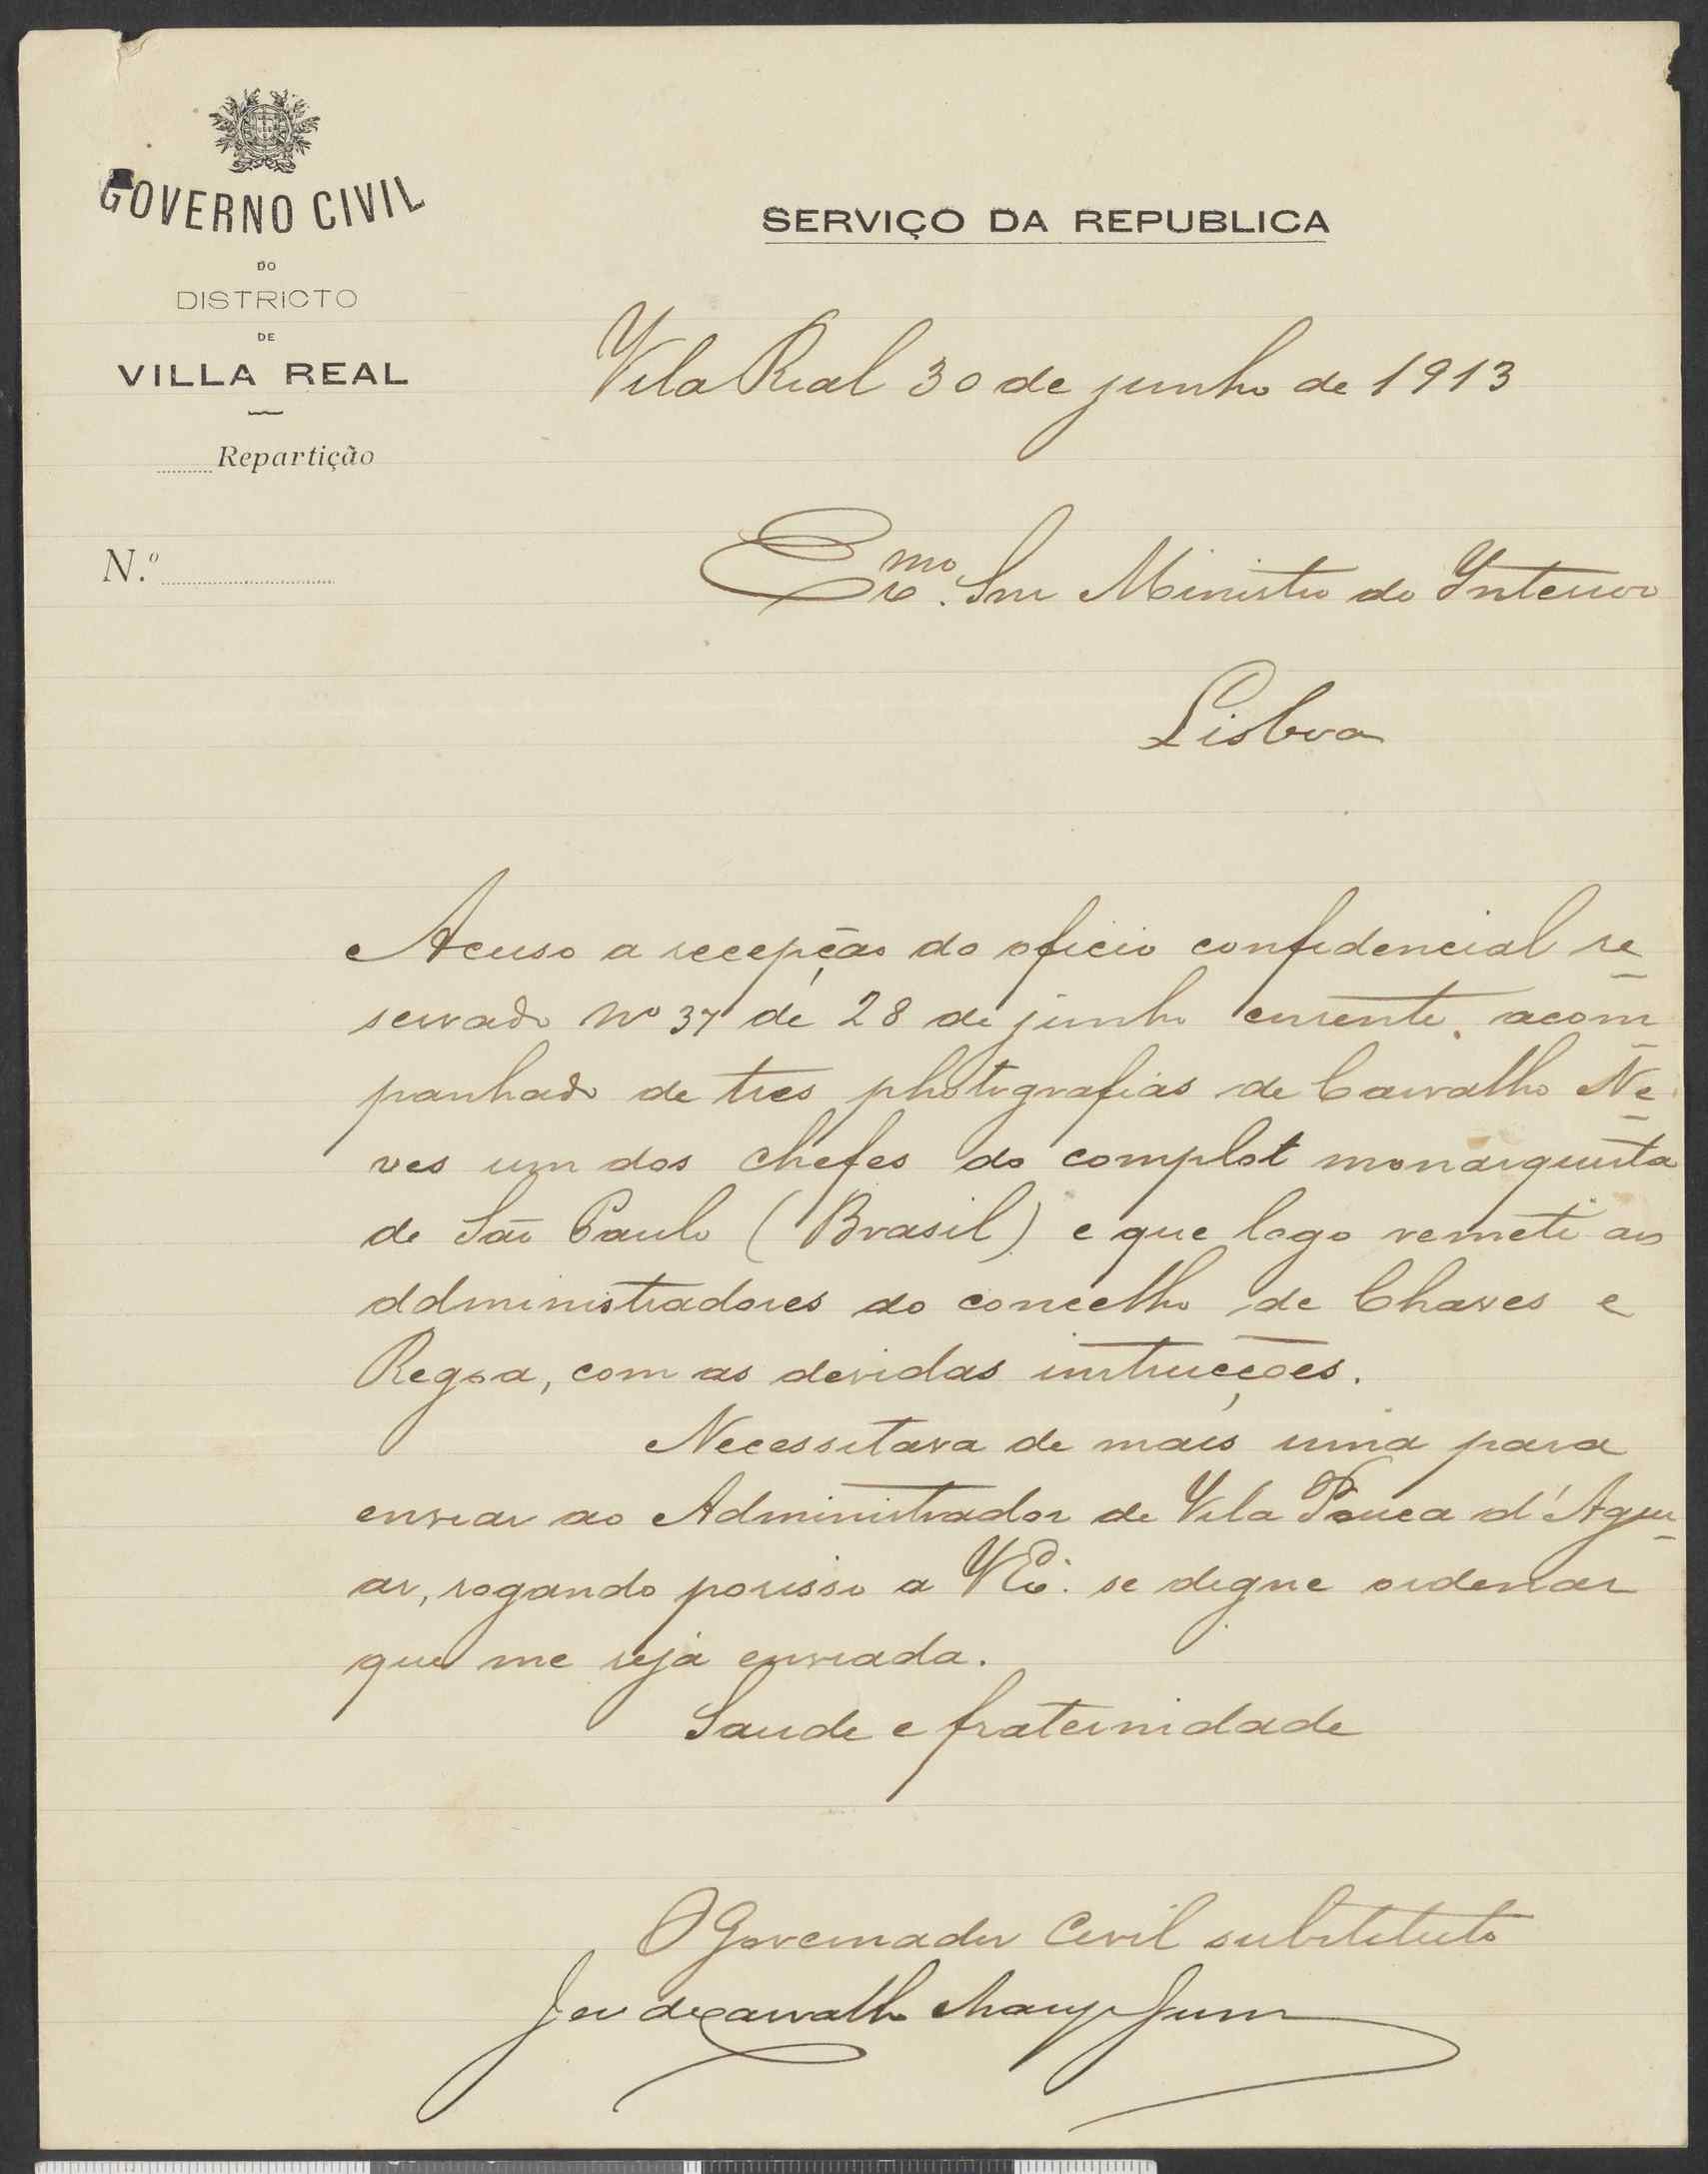 GOVERNO CIVIL
DO
DISTRICTO
DE
VILLA REAL
Repartição
N.º
SERVIÇO DA REPUBLICA
Vila Real 30 de junho de 1913
Exmo. Snr Ministro do Interior
Lisboa
Acuso a recepção do oficio confidencial re
servado nº 37 de 28 de junho corrente, acom
panhado de tres photografias de Carvalho Ne
ves um dos chefes do complot monarquista
de São Paulo (Brasil) e que logo remeti aos
administradores do concelho de Chaves e
Regoa, com as devidas instrucções.
Necessitava de mais uma para
enviar ao Administrador de Vila Pouca d'Agui
ar, rogando porisso a V Ex. se digne ordenar
que me seja enviada.
Saude e fraternidade
O Governador Civil substituto
de Carvalho Araujo Junr